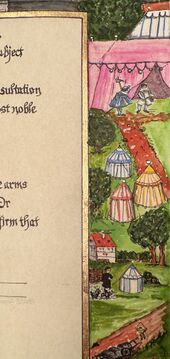 bject
sultation
st noble
e arms
Or
firm that